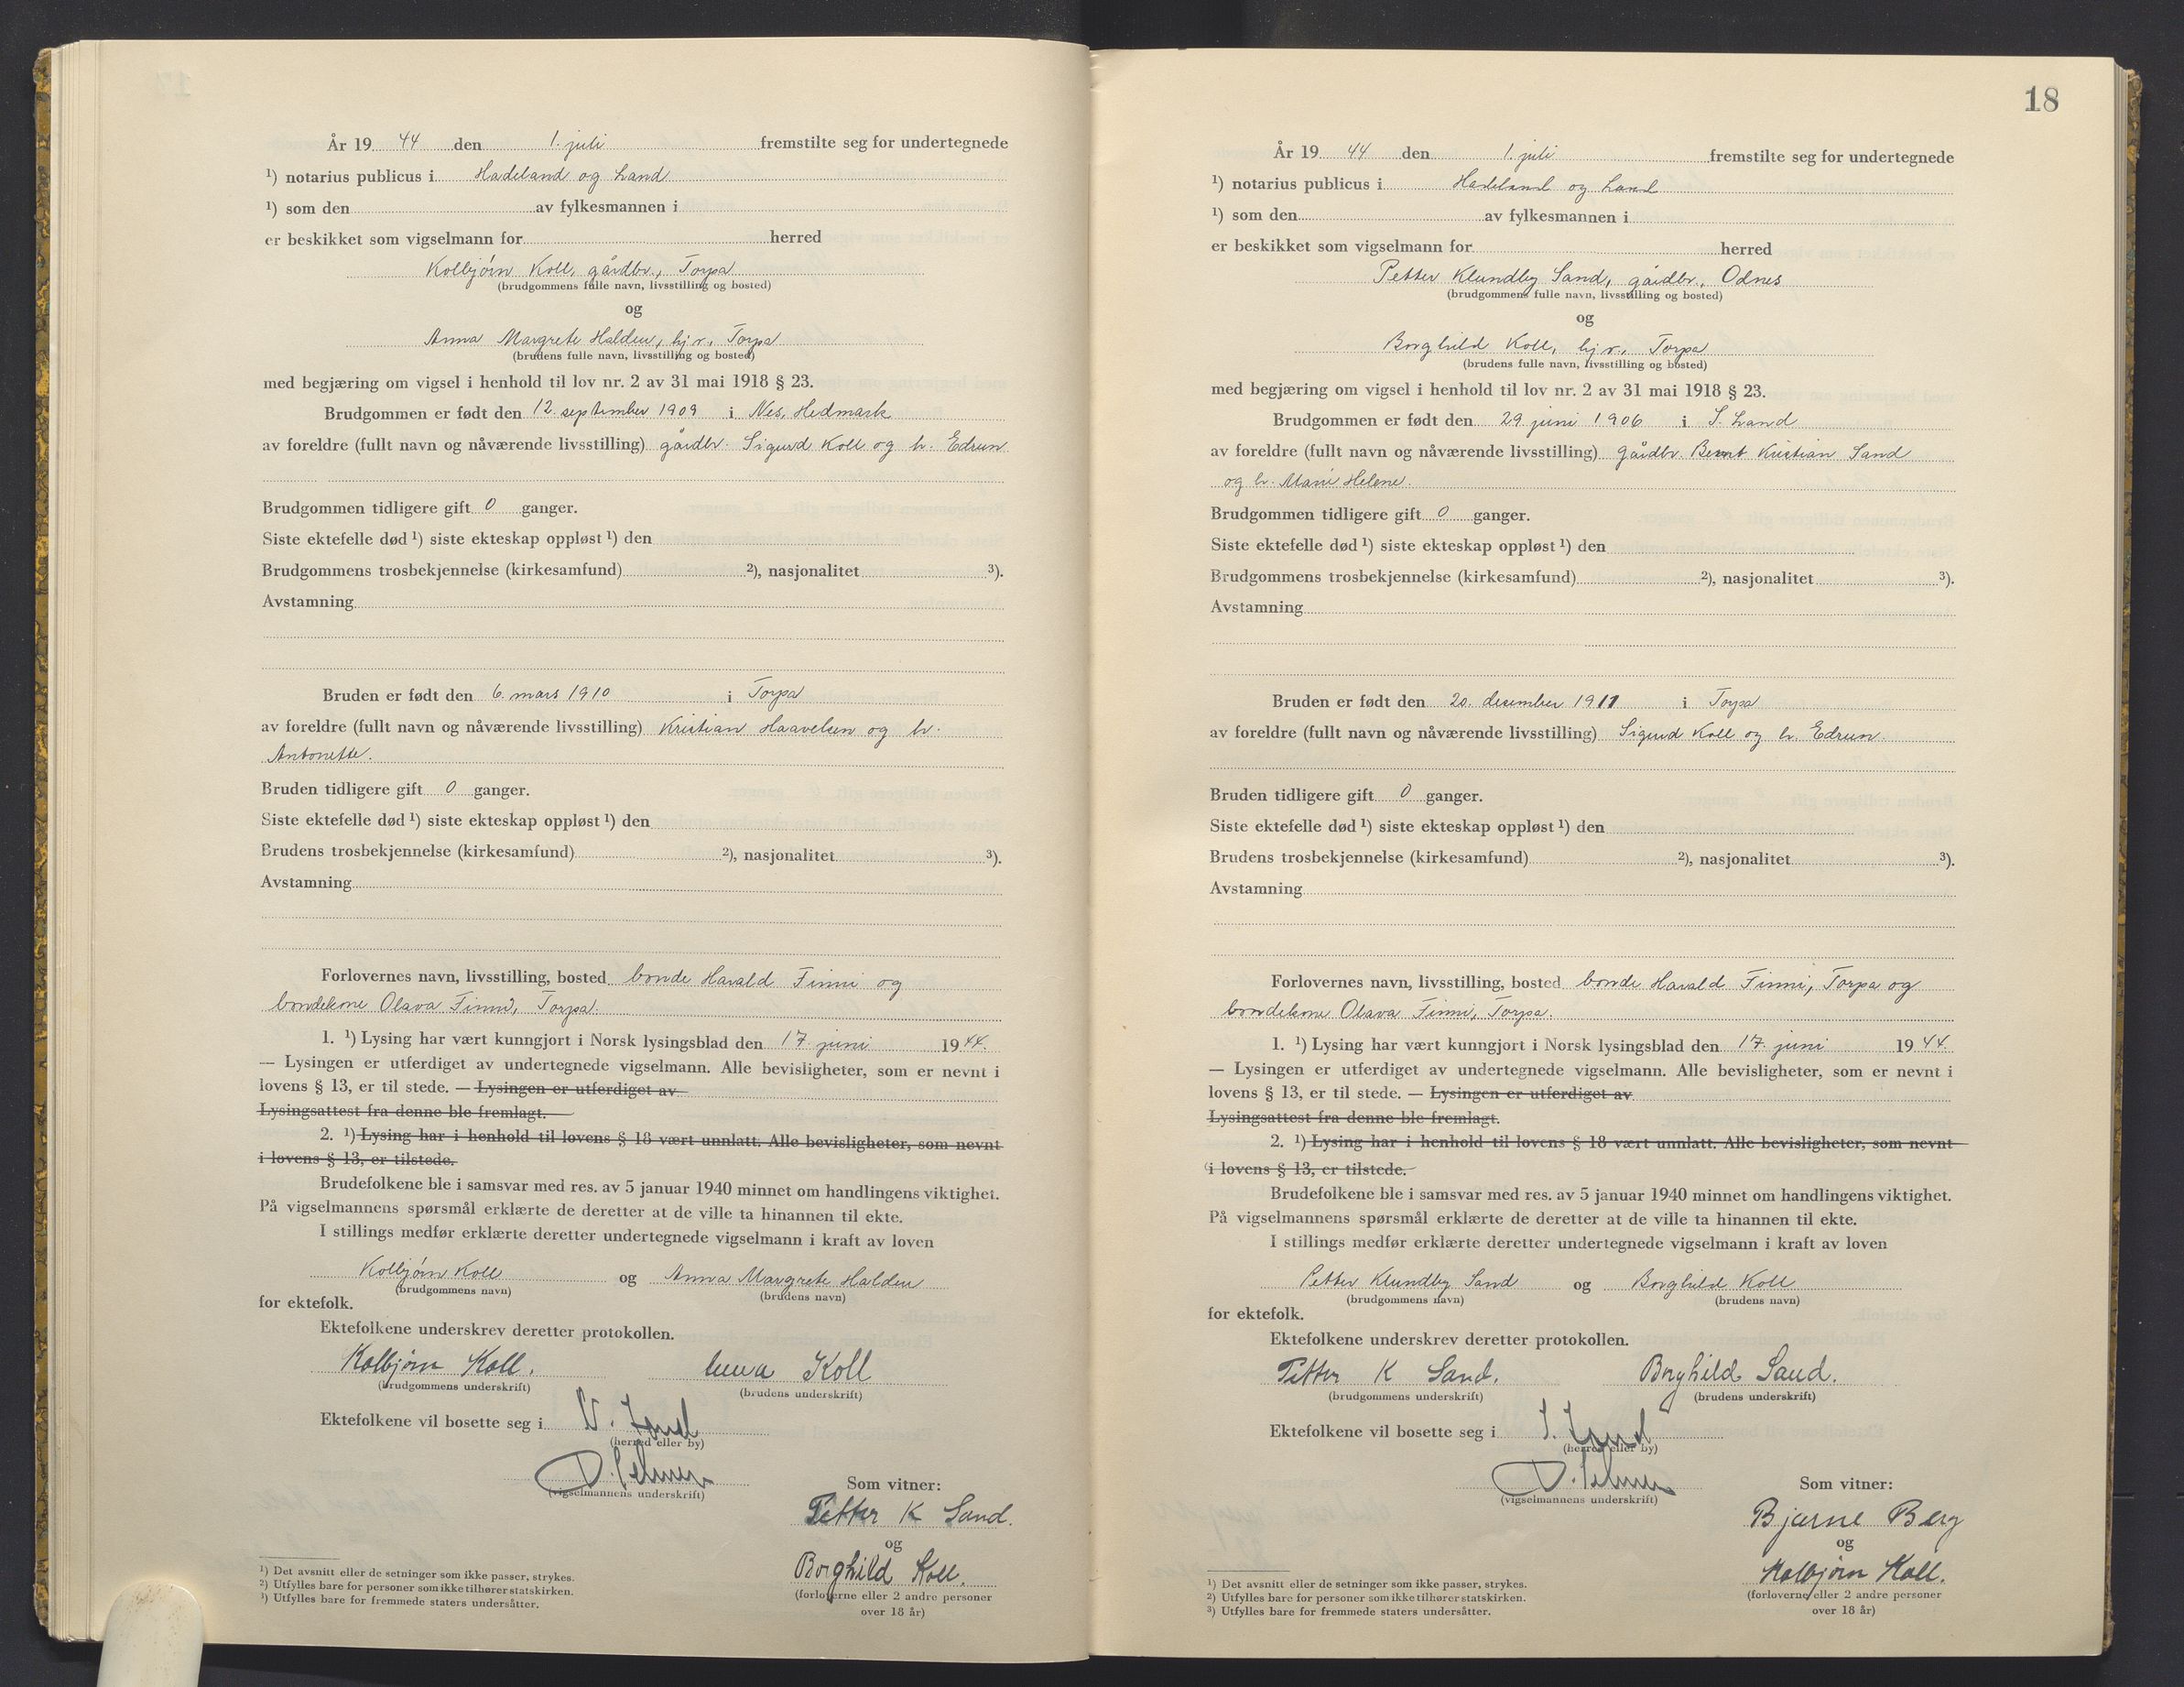 År 19 44 den 1. juli fremstilte seg for undertegnede
¹) notarius publicus i Hadeland og Land
¹) som den av fylkesmannen i
er beskikket som vigselmann for herred
Kolbjørn Koll, gårdbr., Torpa
(brudgommens fulle navn, livsstilling og bosted)
og
Anna Margrete Halden, hj.v., Torpa
(brudens fulle navn, livsstilling og bosted)
med begjæring om vigsel i henhold til lov nr. 2 av 31 mai 1918 § 23.
Brudgommen er født den 12. september 1909 i Nes, Hedmark
av foreldre (fullt navn og nåværende livsstilling) gårdbr. Sigurd Koll og h. Edrun
Brudgommen tidligere gift 0 ganger.
Siste ektefelle død ¹) siste ekteskap oppløst ¹) den
Brudgommens trosbekjennelse (kirkesamfund) ²), nasjonalitet ³).
Avstamning
Bruden er født den 6. mars 1910 i Torpa
av foreldre (fullt navn og nåværende livsstilling) Kristian Haavelsen og h.
Antonette.
Bruden tidligere gift 0 ganger.
Siste ektefelle død ¹) siste ekteskap oppløst ¹) den
Brudens trosbekjennelse (kirkesamfund) ²), nasjonalitet ³).
Avstamning
Forlovernes navn, livsstilling, bosted bonde Harald Finni og
bondekone Olava Finni, Torpa.
1. ¹) Lysing har vært kunngjort i Norsk lysingsblad den 17. juni 1944.
— Lysingen er utferdiget av undertegnede vigselmann. Alle bevisligheter, som er nevnt i
lovens § 13, er til stede. — Lysingen er utferdiget av
Lysingsattest fra denne ble fremlagt.
2. ¹) Lysing har i henhold til lovens § 18 vært unnlatt. Alle bevisligheter, som nevnt
i lovens § 13, er tilstede.
Brudefolkene ble i samsvar med res. av 5 januar 1940 minnet om handlingens viktighet.
På vigselmannens spørsmål erklærte de deretter at de ville ta hinannen til ekte.
I stillings medfør erklærte deretter undertegnede vigselmann i kraft av loven
Kolbjørn Koll og Anna Margrete Halden
(brudgommens navn) (brudens navn)
for ektefolk.
Ektefolkene underskrev deretter protokollen.
Kolbjørn Koll. Anna Koll
(brudgommens underskrift) (brudens underskrift)
Ektefolkene vil bosette seg i N. Land
(herred eller by)
(vigselmannens underskrift)
Som vitner:
Petter K Sand.
og
Borghild Koll.
(forloverne eller 2 andre personer
over 18 år)
¹) Det avsnitt eller de setninger som ikke passer, strykes.
²) Utfylles bare for personer som ikke tilhører statskirken.
³) Utfylles bare for fremmede staters undersåtter.
18
År 19 44 den 1. juli fremstilte seg for undertegnede
¹) notarius publicus i Hadeland og Land
¹) som den av fylkesmannen i
er beskikket som vigselmann for herred
Petter Klundby Sand, gårdbr., Odnes
(brudgommens fulle navn, livsstilling og bosted)
og
Borghild Koll, hj.v., Torpa
(brudens fulle navn, livsstilling og bosted)
med begjæring om vigsel i henhold til lov nr. 2 av 31 mai 1918 § 23.
Brudgommen er født den 29. juni 1906 i S. Land
av foreldre (fullt navn og nåværende livsstilling) gårdbr. Bernt Kristian Sand
og h. Marie Helene.
Brudgommen tidligere gift 0 ganger.
Siste ektefelle død ¹) siste ekteskap oppløst ¹) den
Brudgommens trosbekjennelse (kirkesamfund) ²), nasjonalitet ³).
Avstamning
Bruden er født den 20. desember 1911 i Torpa
av foreldre (fullt navn og nåværende livsstilling) Sigurd Koll og h. Edrun.
Bruden tidligere gift 0 ganger.
Siste ektefelle død ¹) siste ekteskap oppløst ¹) den
Brudens trosbekjennelse (kirkesamfund) ²), nasjonalitet ³).
Avstamning
Forlovernes navn, livsstilling, bosted bonde Harald Finni, Torpa og
bondekone Olava Finni, Torpa.
1. ¹) Lysing har vært kunngjort i Norsk lysingsblad den 17. juni 1944.
— Lysingen er utferdiget av undertegnede vigselmann. Alle bevisligheter, som er nevnt i
lovens § 13, er til stede. — Lysingen er utferdiget av
Lysingsattest fra denne ble fremlagt.
2. ¹) Lysing har i henhold til lovens § 18 vært unnlatt. Alle bevisligheter, som nevnt
i lovens § 13, er tilstede.
Brudefolkene ble i samsvar med res. av 5 januar 1940 minnet om handlingens viktighet.
På vigselmannens spørsmål erklærte de deretter at de ville ta hinannen til ekte.
I stillings medfør erklærte deretter undertegnede vigselmann i kraft av loven
Petter Klundby Sand og Borghild Koll
(brudgommens navn) (brudens navn)
for ektefolk.
Ektefolkene underskrev deretter protokollen.
Petter K Sand. Borghild Sand.
(brudgommens underskrift) (brudens underskrift)
Ektefolkene vil bosette seg i S. Land
(herred eller by)
(vigselmannens underskrift)
Som vitner:
Bjarne Berg
og
Kolbjørn Koll.
(forloverne eller 2 andre personer
over 18 år)
¹) Det avsnitt eller de setninger som ikke passer, strykes.
²) Utfylles bare for personer som ikke tilhører statskirken.
³) Utfylles bare for fremmede staters undersåtter.